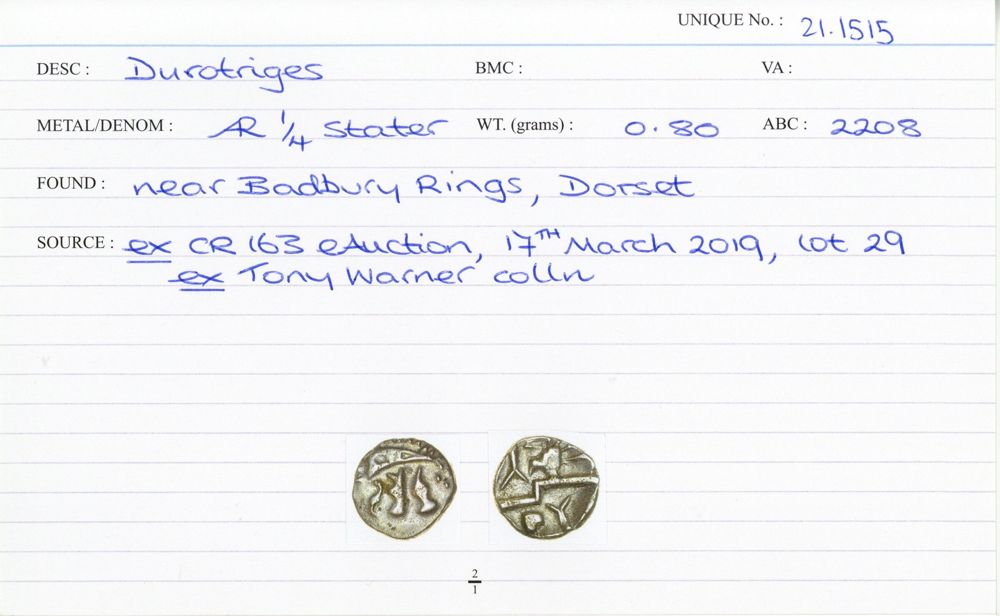 UNIQUE No. : 21.1515
DESC : Durotriges BMC : VA :
METAL/DENOM : AR 1/4 stater WT. (grams) : 0.80 ABC : 2208
FOUND : near Badbury Rings, Dorset
SOURCE : ex CR 163 eAuction, 17TH March 2019, lot 29
ex Tony Warner colln
2/1